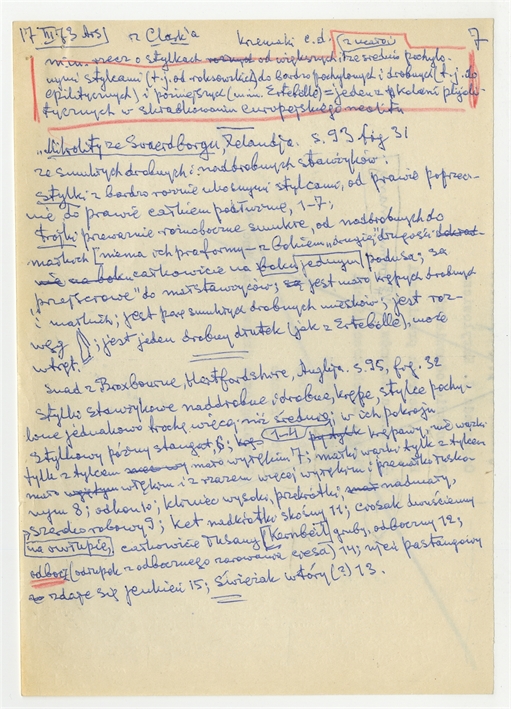 17 III 73 Ars] z Clark'a krzemuki c.d. z uwagi 7
min. rzecz o stylkach od większych i ze średnio pochylo-
nymi stylcami (t.j. od roksowskich) do bardzo pochylonych i drobnych (t.j. do
epilitycznych) i późniejszych (m.in. Ertebølle) = jeden z
tycznych w składkowaniu europejskiego neolitu
„Mikrolity ze Svaerdborgu, Zelandja. s. 93 fig 31
ze smukłych drobnych i naddrobnych stawzyków:
stylki z bardzo równie ukosnymi stylcami, od prawie poprzecz-
nie do prawie całkiem podłużnie, 1-7;
trójki przeważnie różnoboczne smukłe, od naddrobnych do
małych [niema ich praformy - z bokiem „drugiej" długości
całkowicie na jednym podusa; są
„przejściowe" do nierstawców; jest mało krępych drobnych
i małych; jest parę smukłych drobnych mieszków; jest roz-
węg ; jest jeden drobny dłutek (jak z Ertebølle), może
wtręt.
snad z Broxbourne, Hertfordshire, Anglija. s. 95, fig. 32
stylki stawzykowe naddrobne i drobne, krępe, stylce pochy-
lone jednakowo trochę więcej niż średniej, w ich pokroju
stylkowy późny stangat, 6; 1-4 krępawy, nie wąski
tylke z tylcem mało wygiętym 7; małki wąski tylke z tylcem
mało wygiętym i z razem więcej wygiętym i
nym 8; odkonio; kliniec wysoki, przekrótki, nadmały,
szeroko robowy 9; ket nadkrótki skośny 11; ciosak dwuścienny
na owłupię, całkowicie ciosany [Karnbeil] gruby, odboczny 12;
odbocz (odrupek z odbocznego zarowania ciesa) 14; pastangowy
zdaje się jenkień 15; świeżak wtóry (?) 13.